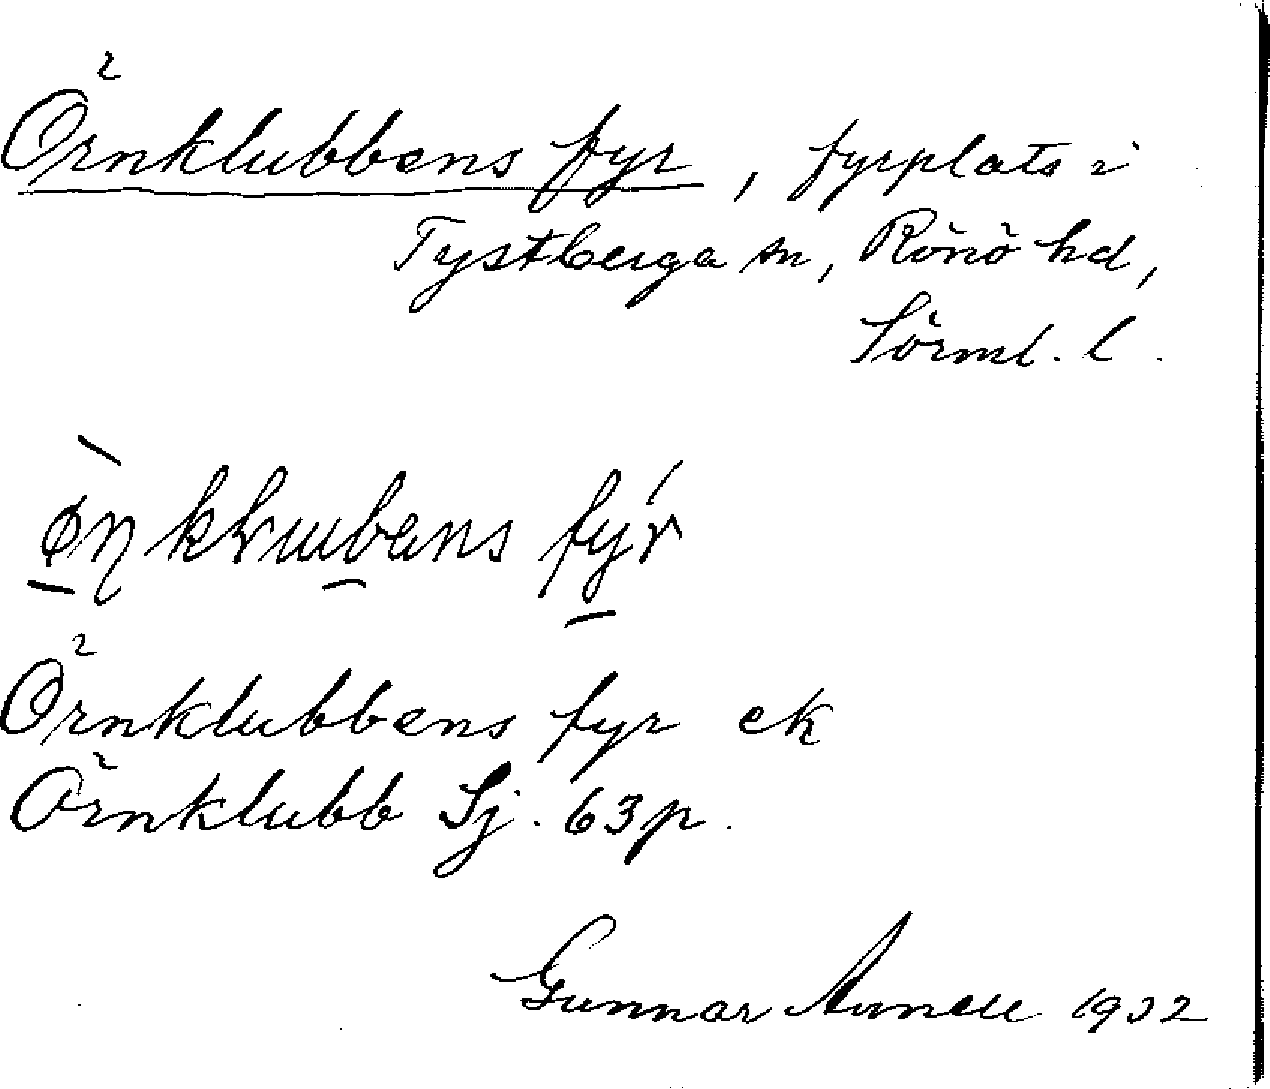 Örnklubbens fyr, fyrplats i
Tystberga sn, Rönö hd,
Sörml. l.
fýr
Örnklubbens fyr ek
Örnklubb Sj. 63 p.
Gunnar 1932